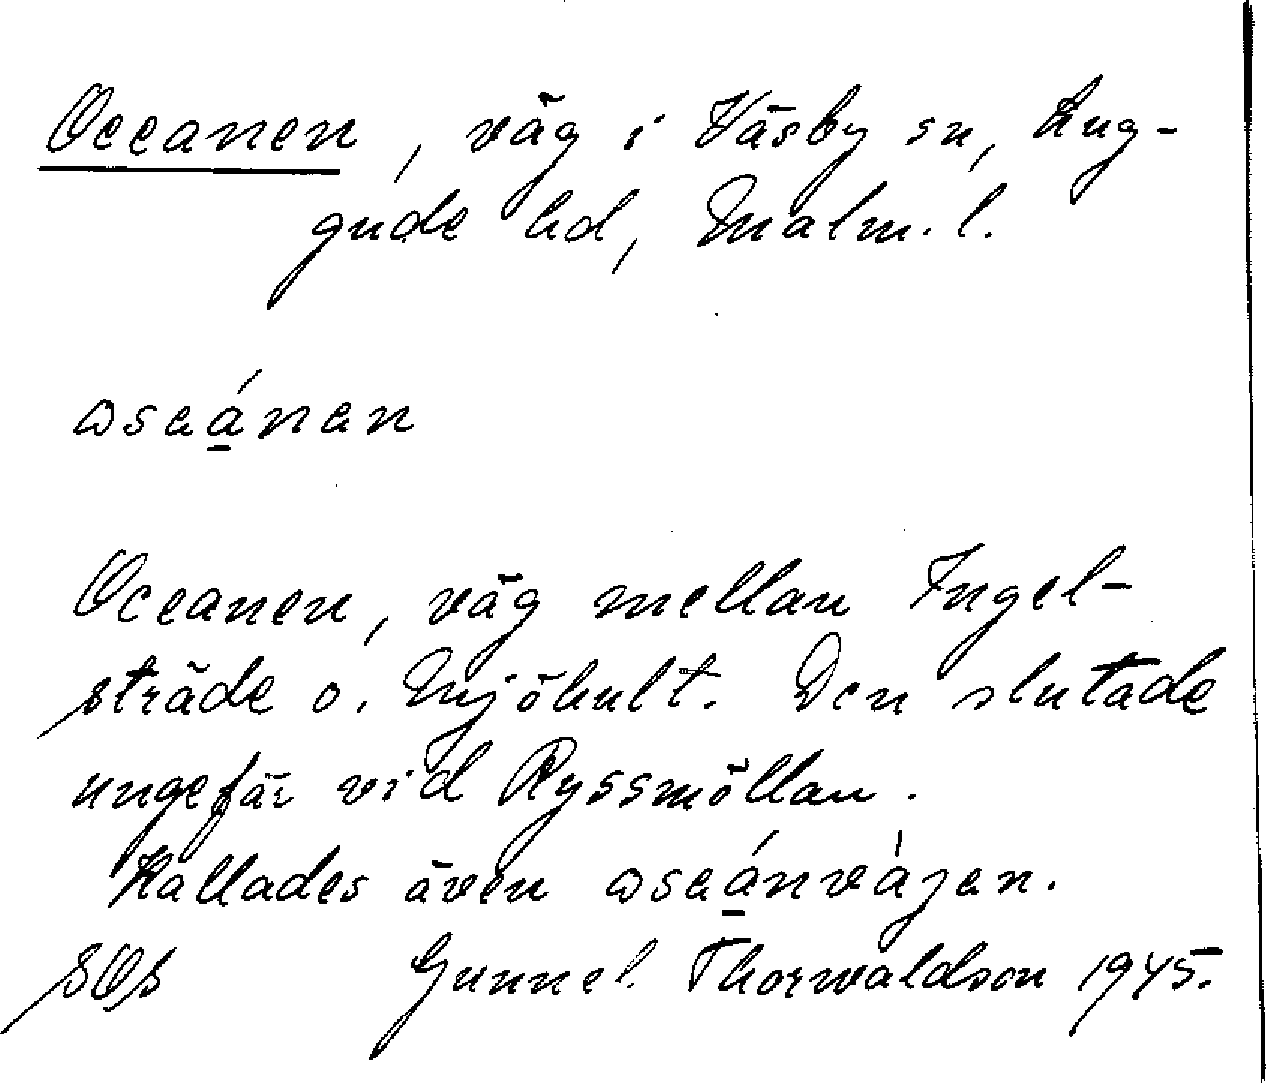 Oceanen, väg i Väsby sn, Lug-
gude hd, Malm. l.
ɷseá̱nen
Oceanen, väg mellan Ingel-
sträde o. Mjöhult. Den slutade
ungefär vid Ryssmöllan.
Kallades även ɷseá̱nvàjen.
SOS Gunnel Thorwaldson 1945.